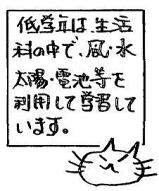 低学年は、生活
科の中で、風・水
太陽・電池等を
利用して学習して
います。